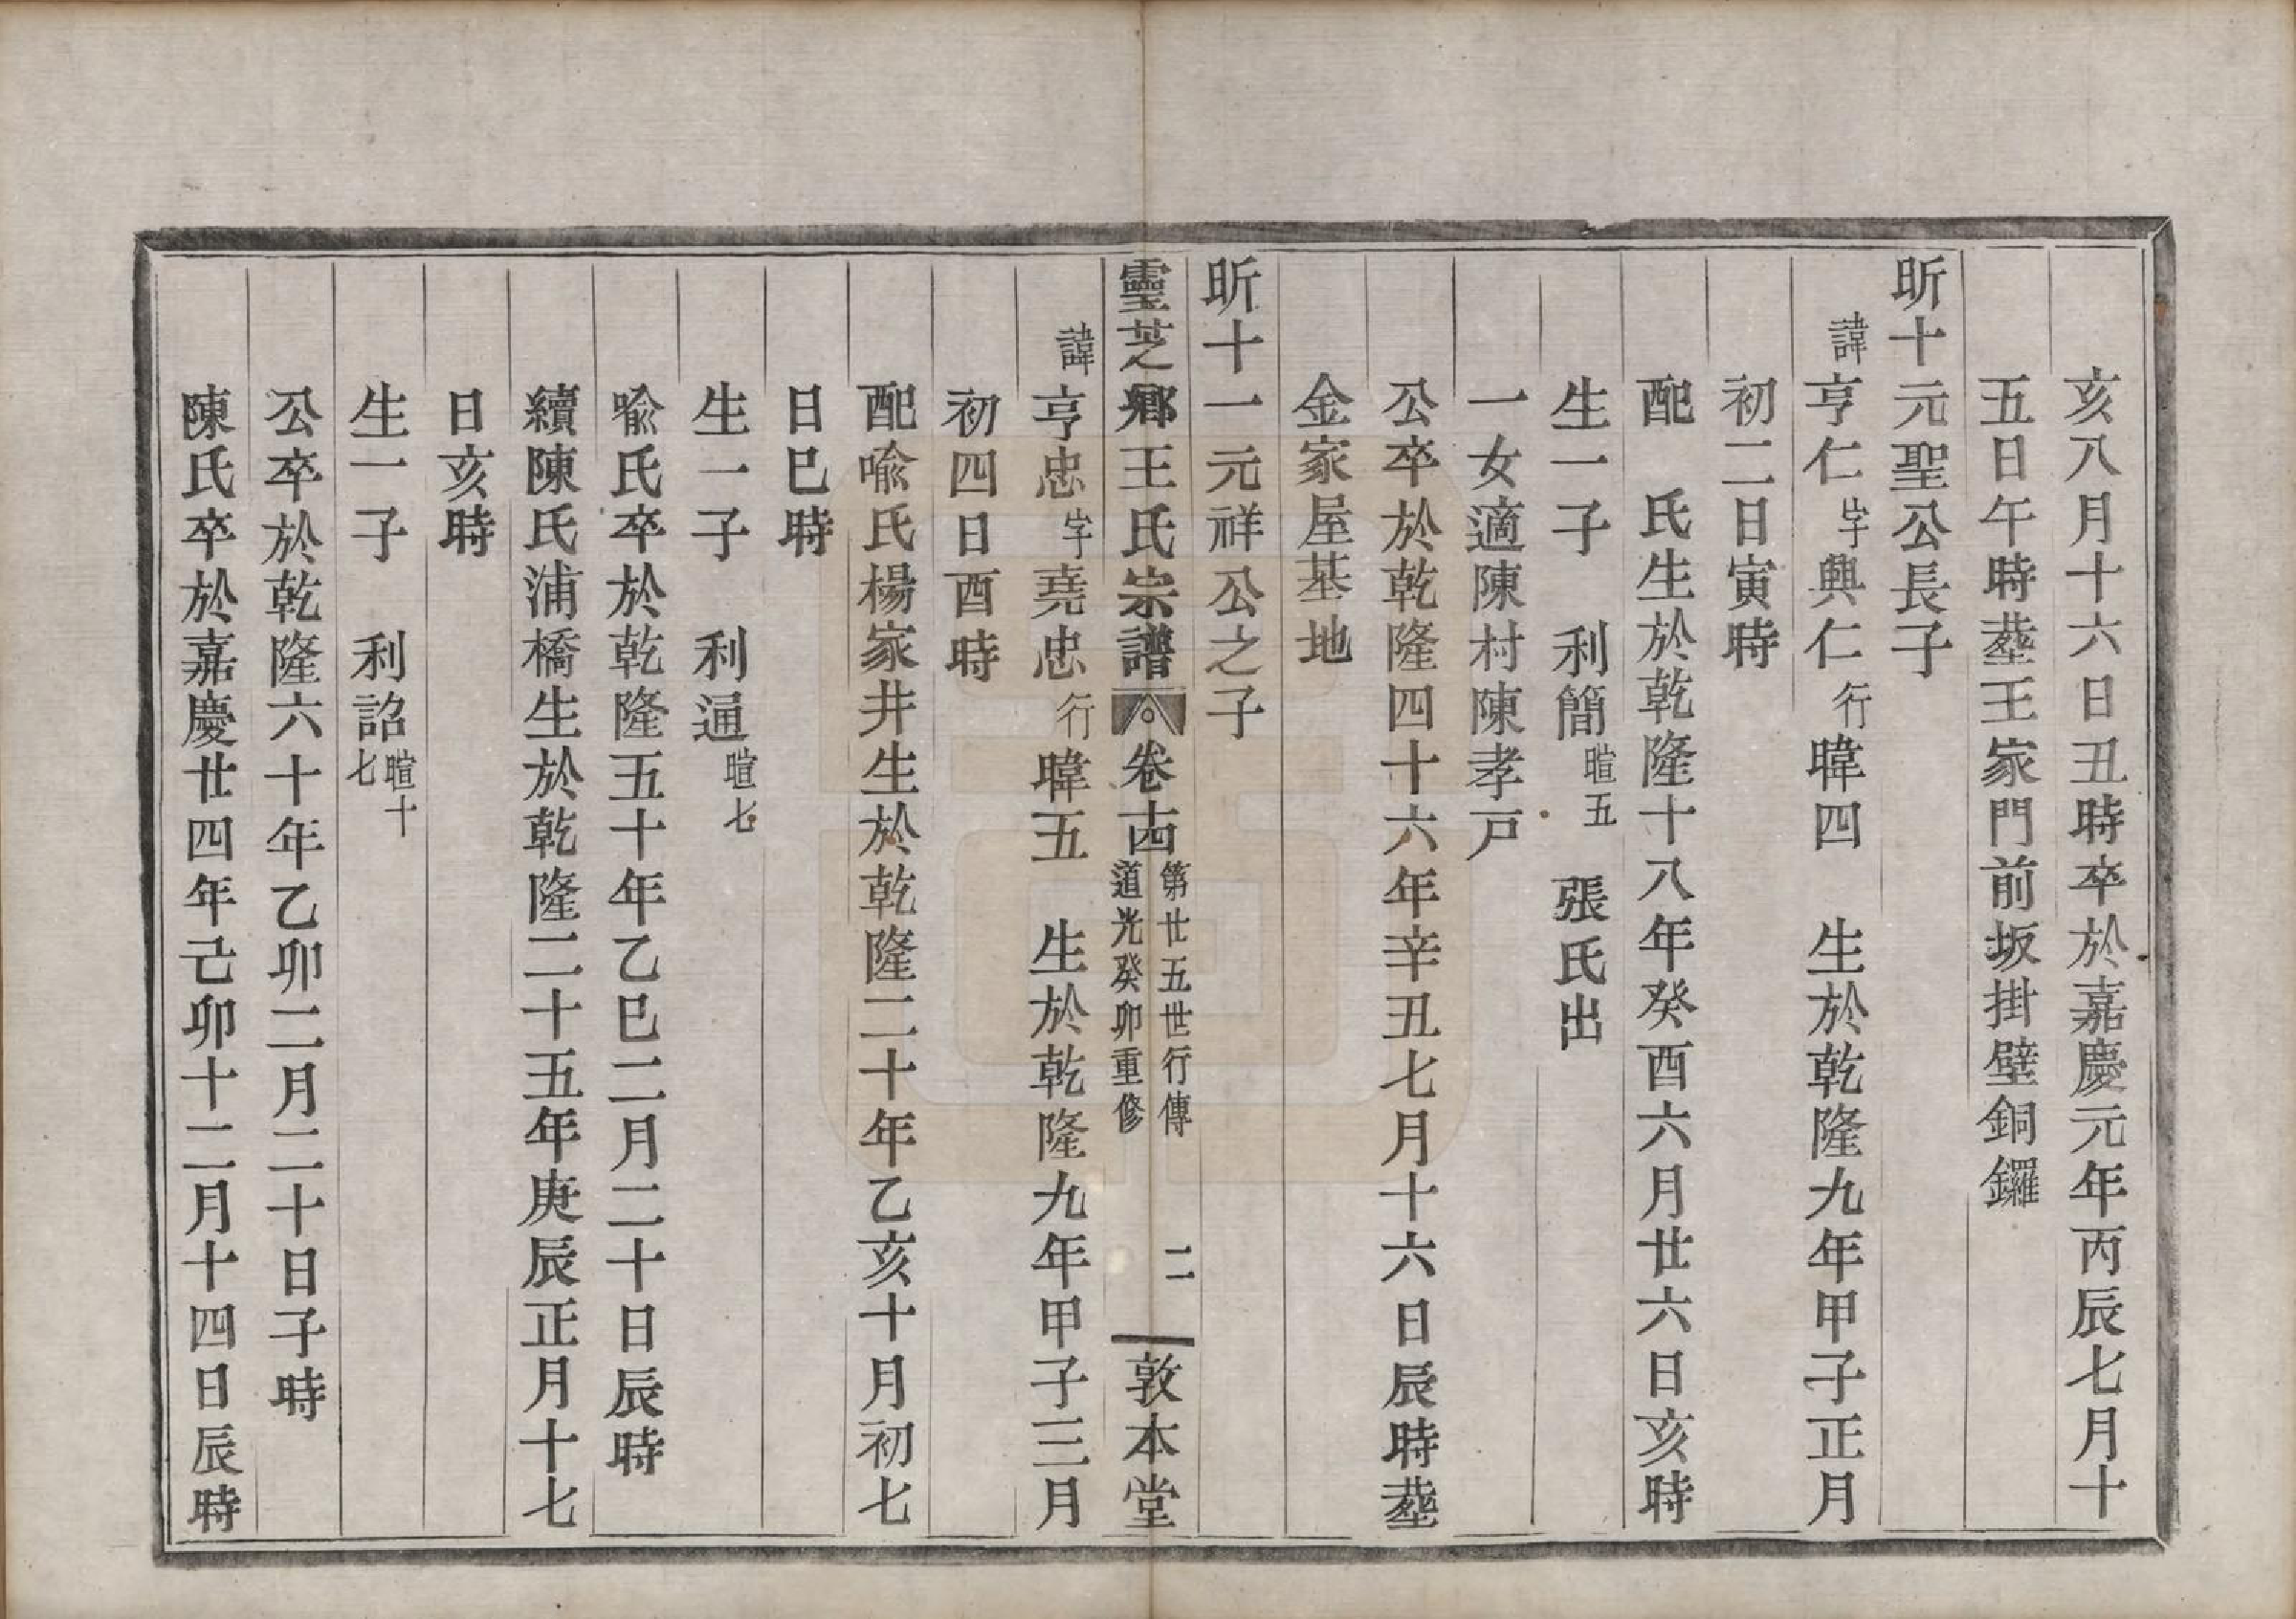 亥八月十六日丑時卒於嘉慶元年丙辰七月十
五日午時塟王家門前坂掛壁銅鑼
昕十元聖公長子
諱亨仁字興仁行暐四　生於乾隆九年甲子正月
初二日寅時
配　氏生於乾隆十八年癸酉六月廿六日亥時
生一子　利簡暄五　張氏出
一女適陳村陳孝戸
公卒於乾隆四十六年辛丑七月十六日辰時塟
金家屋基地
昕十一元祥公之子
靈芝鄉王氏宗譜　卷十四　第廿五世行傳　道光癸卯重修　二　敦本堂
諱亨忠字堯忠行暐五　生於乾隆九年甲子三月
初四日酉時
配喩氏楊家井生於乾隆二十年乙亥十月初七
日巳時
生一子　利通暄七
喩氏卒於乾隆五十年乙巳二月二十日辰時
續陳氏浦橋生於乾隆二十五年庚辰正月十七
日亥時
生一子　利詔暄十七
公卒於乾隆六十年乙卯二月二十日子時
陳氏卒於嘉慶廿四年己卯十二月十四日辰時